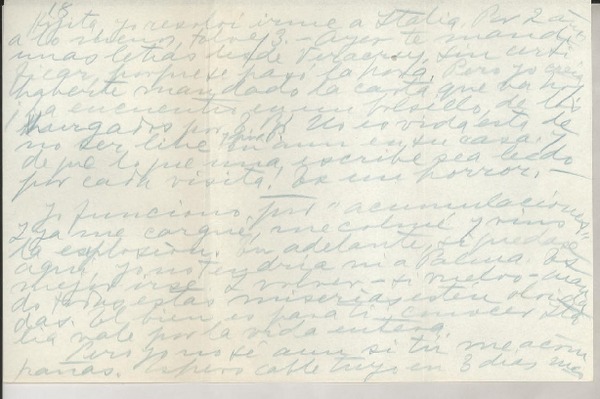 18
gente, yo resolví irme a Italia. Por 2 añ-
a lo menos, tal vez 3. - Ayer te mandé
unas letras desde Veracruz, sin certi
ficar, porque se pasó la hora. Pero yo creía
haberte mandado la carta que va hoy
la encuentro en un bolsillo, de las
por No es vida esto de
no ser libre ni aun en su casa y
de que lo que una escribe sea leído
por cada visita! Es un horror. -
Yo funciono por "acumulaciones"
y ya me cargué, me colmé y vino
la explosión. En adelante, si quedaso
aquí, yo no tendría ni a Palma. Es
mejor irse y volver - si vuelvo - cuan
do todas estas miserias estén olvida
das. El bien es para ti: conocer Ita
lia vale por la vida entera.
Pero yo no sé aun si tú me acom
pañas. Espero cable tuyo en 3 días más